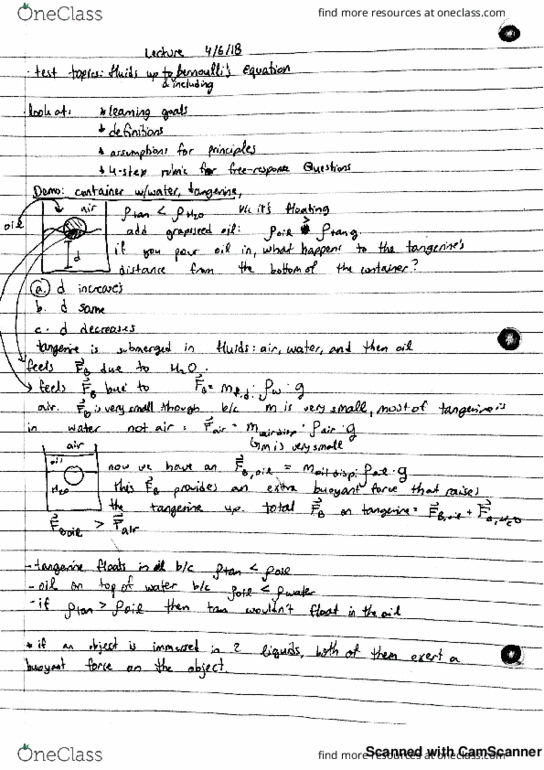 OneClass
find more resources at oneclass.com
Lecture 4/6/18
- test topics: fluids up to bernoulli's Equation
& including
look at: * learning goals
* definitions
* assumptions for principles
* 4-step rubric for free-response Questions
Demo: container w/water, tangerine,
air
oil
d
ρtan < ρH2O b/c it's floating
add grapeseed oil: ρoil > ρtang
if you pour oil in, what happens to the tangerine's
distance from the bottom of the container?
a. d increases
b. d same
c. d decreases
tangerine is submerged in fluids: air, water, and then oil
feels FB due to H2O.
feels FB due to FB = mf.d. · ρw · g
air. FB is very small though b/c m is very small, most of tangerine is
in water not air: Fair = mair disp · ρair · g
m is very small
air
oil
H2O
now we have an FB,oil = moil disp · ρoil · g
this FB provides an extra buoyant force that raises
the tangerine up. total FB on tangerine = FB,oil + FB,H2O
FBoil > Fair
- tangerine floats in oil b/c ρtan < ρoil
- oil on top of water b/c ρoil < ρwater
- if ρtan > ρoil then tan wouldn't float in the oil
* if an object is immersed in 2 liquids, both of them exert a
buoyant force on the object.
OneClass
find more resources at oneclass.com
Scanned with CamScanner